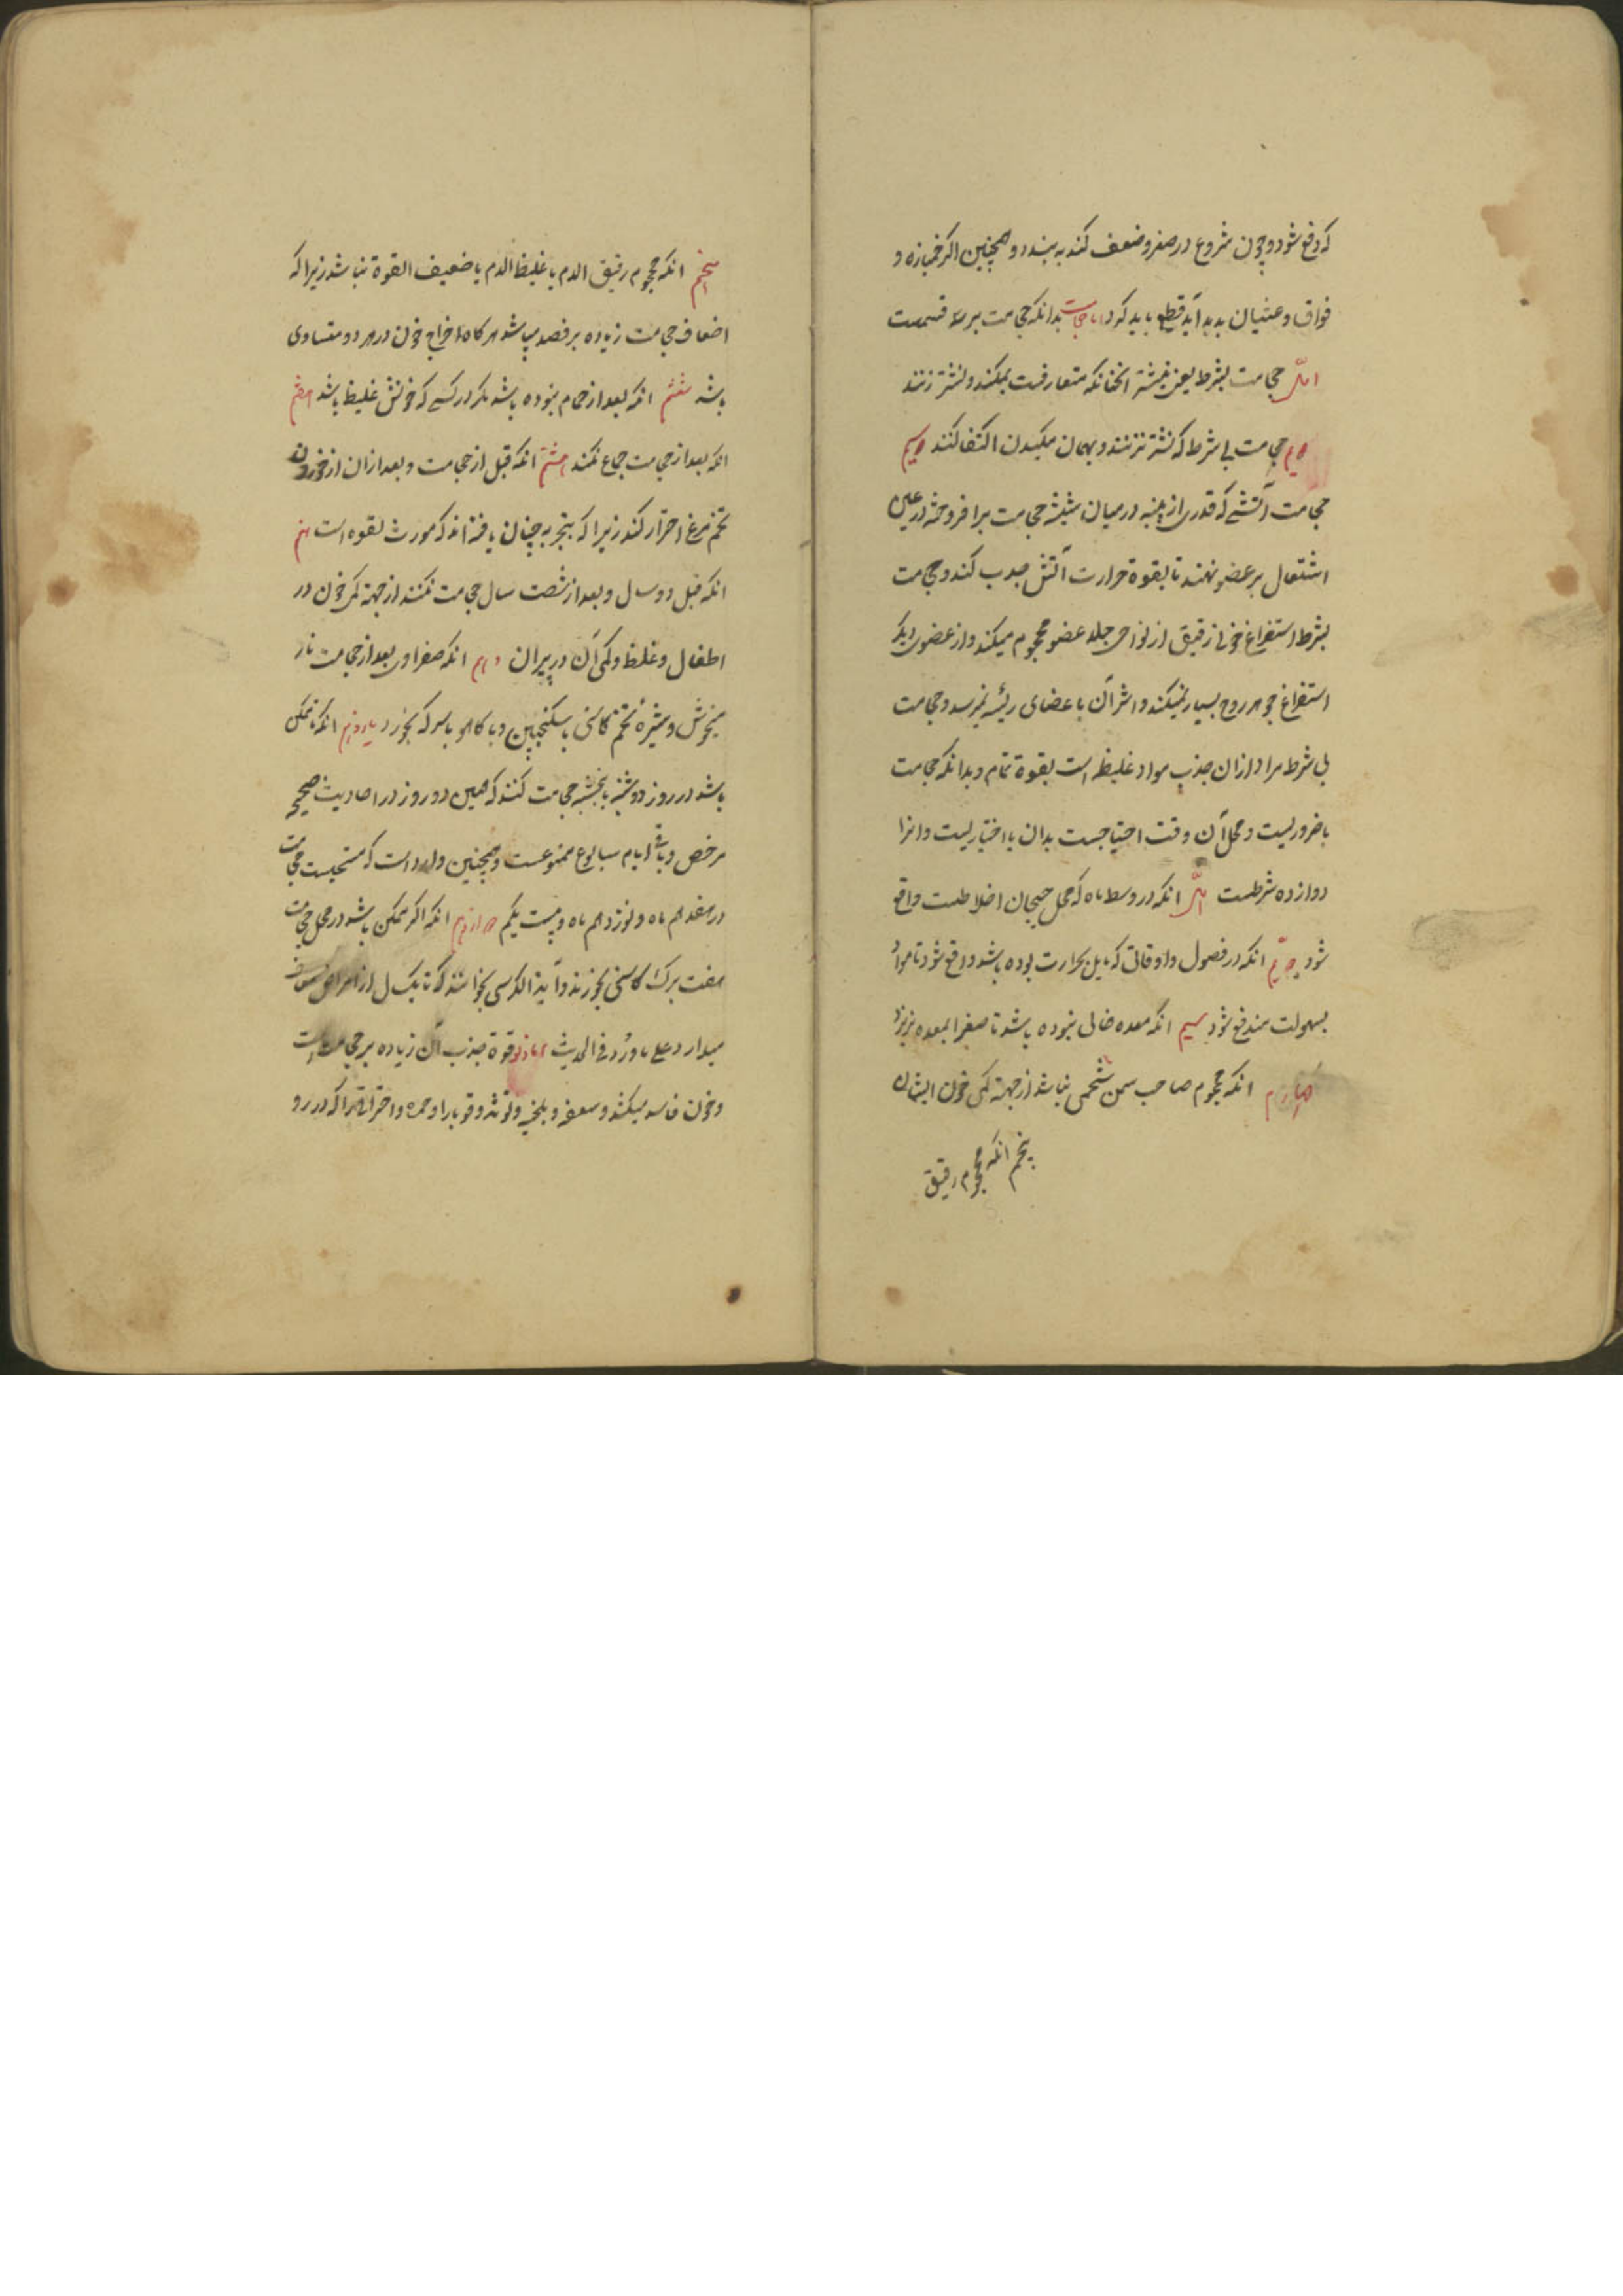 که دفع شود و چون شروع در صغر و ضعف کند به بندد و همچنین اکر خمیازه و
فواق و غثیان پدید آید قطع باید کرد اما حجامت بدانکه حجامت بر سه قسمست
اول حجامت بشرط یعنی بنیشتر انچنانکه متعارفست بمکند و نشتر زنند
دویم حجامت بی شرط که نشتر نزنند و بهمان مکیدن اکتفا کنند سیم
حجامت آتشی که قدری از پنبه در میان شیشه حجامت بر افروخته در عین
اشتعال بر عضو نهند تا بقوة حرارت آتش جذب کند و حجامت
بشرط استفراغ خون رقیق از نواحی جلد عضو محجوم میکند و از عضوی دیکر
استفراغ جوهر روح بسیار نمیکند و اثر آن باعضای رئیسه نمیرسد و حجامت
بی شرط مراد ازان جذب مواد غلیظه است بقوة تمام و بدانکه حجامت
یا ضروریست و محل آن وقت احتیاجست بدان یا اختیاریست و انرا
دوازده شرطست اول انکه در وسط ماه که محل هیجان اخلاطست واقع
شود دویم انکه در فصول و اوقاتی که مایل بحرارت بوده باشد واقع شود تا مواد
بسهولت مندفع شود سیم انکه معده خالی نبوده باشد تا صفرا بمعده نریزد
چهارم انکه محجوم صاحب سمن شحمی نباشد از جهة کمی خون ایشان
پنجم انکه محجوم رقیق
پنجم انکه محجوم رقیق الدم یا غلیظ الدم یا ضعیف القوة نباشد زیرا که
اضعاف حجامت زیاده بر فصد میباشد هرکاه اخراج خون در هر دو متساوی
باشد ششم انکه بعد از حمام نبوده باشد مکر در کسی که خونش غلیظ باشد هفتم
انکه بعد از حجامت جماع نکند هشتم انکه قبل از حجامت و بعد ازان از خوردن
تخم مرغ احتراز کند زیرا که بتجربه چنان یافته اند که مورث لقوه است نهم
انکه قبل دو سال و بعد از شصت سال حجامت نکنند از جهة کمی خون در
اطفال و غلظ و کمی آن در پیران دهم انکه صفراوی بعد از حجامت نار
میخوش و شیرهٔ تخم کاسنی با سکنجبین و یا کاهو با سرکه بخورد یازدهم انکه تا ممکن
باشد در روز دوشنبه یا پنجشنبه حجامت کنند که همین دو روز در احادیث صحیحه
مرخص و باقی ایام سبابوع ممنوعست و همچنین وارد است که مستحبست حجامت
در هفدهم ماه و نوزدهم ماه و بیست یکم دوازدهم انکه اکر ممکن باشد در محل حجامت
هفت برک کاسنی بخورند و آیة الکرسی بخوانند که تا یکسال از امراض معاف
میدارد علی ماورد فی الحدیث اما زلو قوة جذب آن زیاده بر حجامت است
و خون فاسد میکشد و سعفه و بلخیه و توثه و قوبا را و حمره و احتراقی را که در رو